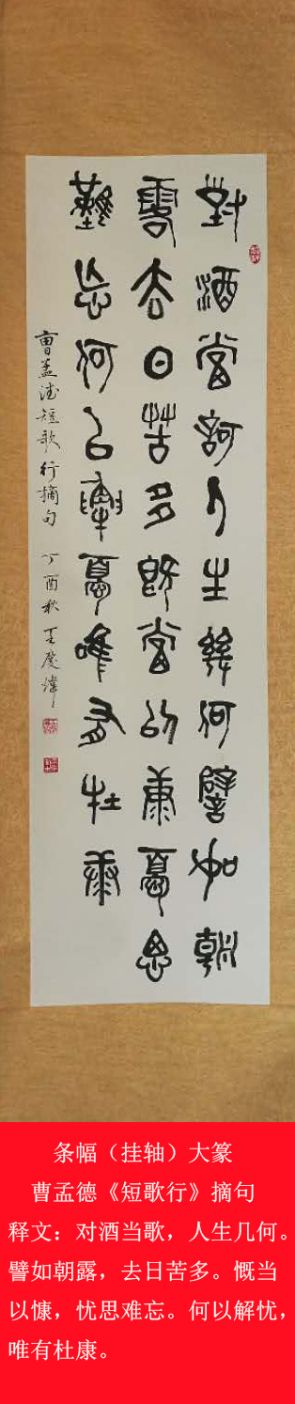 對酒當訶人生幾何譬如朝
露去日苦多既當以康憂思
難忘何以解憂唯有杜康
曹孟德短歌行摘句 丁酉秋 王
条幅（挂轴）大篆
曹孟德《短歌行》摘句
释文：对酒当歌，人生几何。
譬如朝露，去日苦多。慨当
以慷，忧思难忘。何以解忧，
唯有杜康。